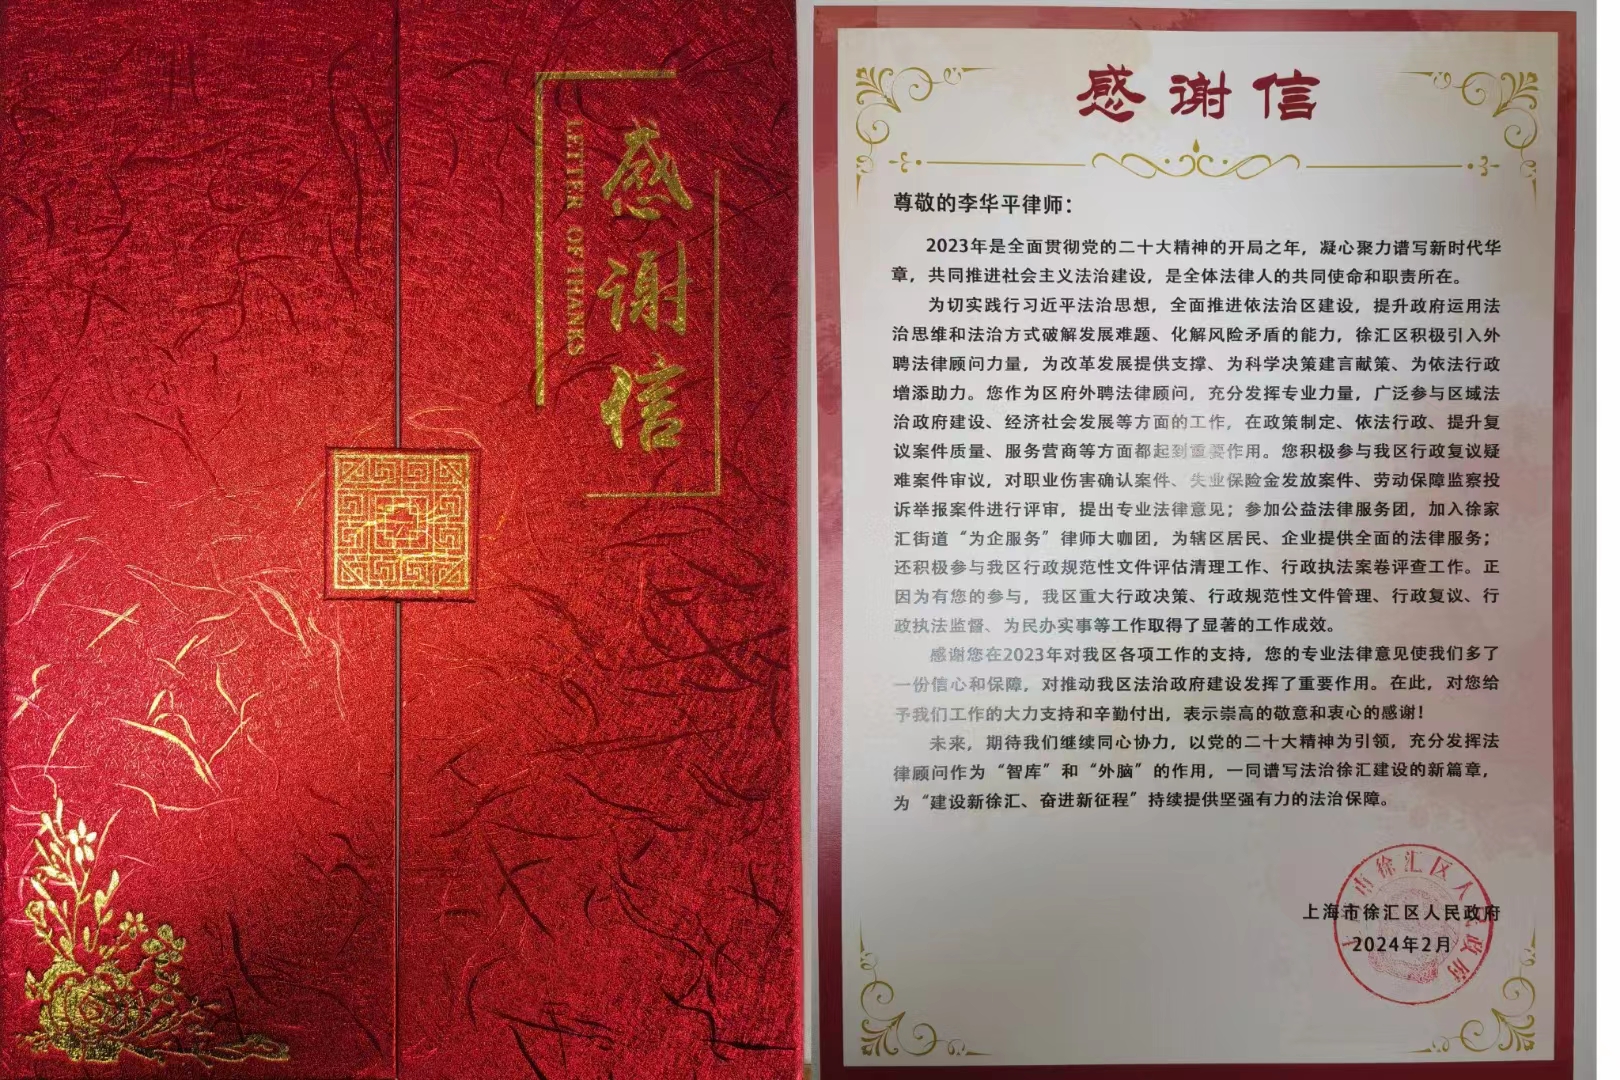 感谢信
LETTER OF THANKS
感谢信
尊敬的李华平律师：
2023年是全面贯彻党的二十大精神的开局之年，凝心聚力谱写新时代华
章，共同推进社会主义法治建设，是全体法律人的共同使命和职责所在。
为切实践行习近平法治思想，全面推进依法治区建设，提升政府运用法
治思维和法治方式破解发展难题、化解风险矛盾的能力，徐汇区积极引入外
聘法律顾问力量，为改革发展提供支撑、为科学决策建言献策、为依法行政
增添助力。您作为区府外聘法律顾问，充分发挥专业力量，广泛参与区域法
治政府建设、经济社会发展等方面的工作，在政策制定、依法行政、提升复
议案件质量、服务营商等方面都起到重要作用。您积极参与我区行政复议疑
难案件审议，对职业伤害确认案件、失业保险金发放案件、劳动保障监察投
诉举报案件进行评审，提出专业法律意见；参加公益法律服务团，加入徐家
汇街道“为企服务”律师大咖团，为辖区居民、企业提供全面的法律服务；
还积极参与我区行政规范性文件评估清理工作、行政执法案卷评查工作。正
因为有您的参与，我区重大行政决策、行政规范性文件管理、行政复议、行
政执法监督、为民办实事等工作取得了显著的工作成效。
感谢您在2023年对我区各项工作的支持，您的专业法律意见使我们多了
一份信心和保障，对推动我区法治政府建设发挥了重要作用。在此，对您给
予我们工作的大力支持和辛勤付出，表示崇高的敬意和衷心的感谢！
未来，期待我们继续同心协力，以党的二十大精神为引领，充分发挥法
律顾问作为“智库”和“外脑”的作用，一同谱写法治徐汇建设的新篇章，
为“建设新徐汇、奋进新征程”持续提供坚强有力的法治保障。
上海市徐汇区人民政府
2024年2月